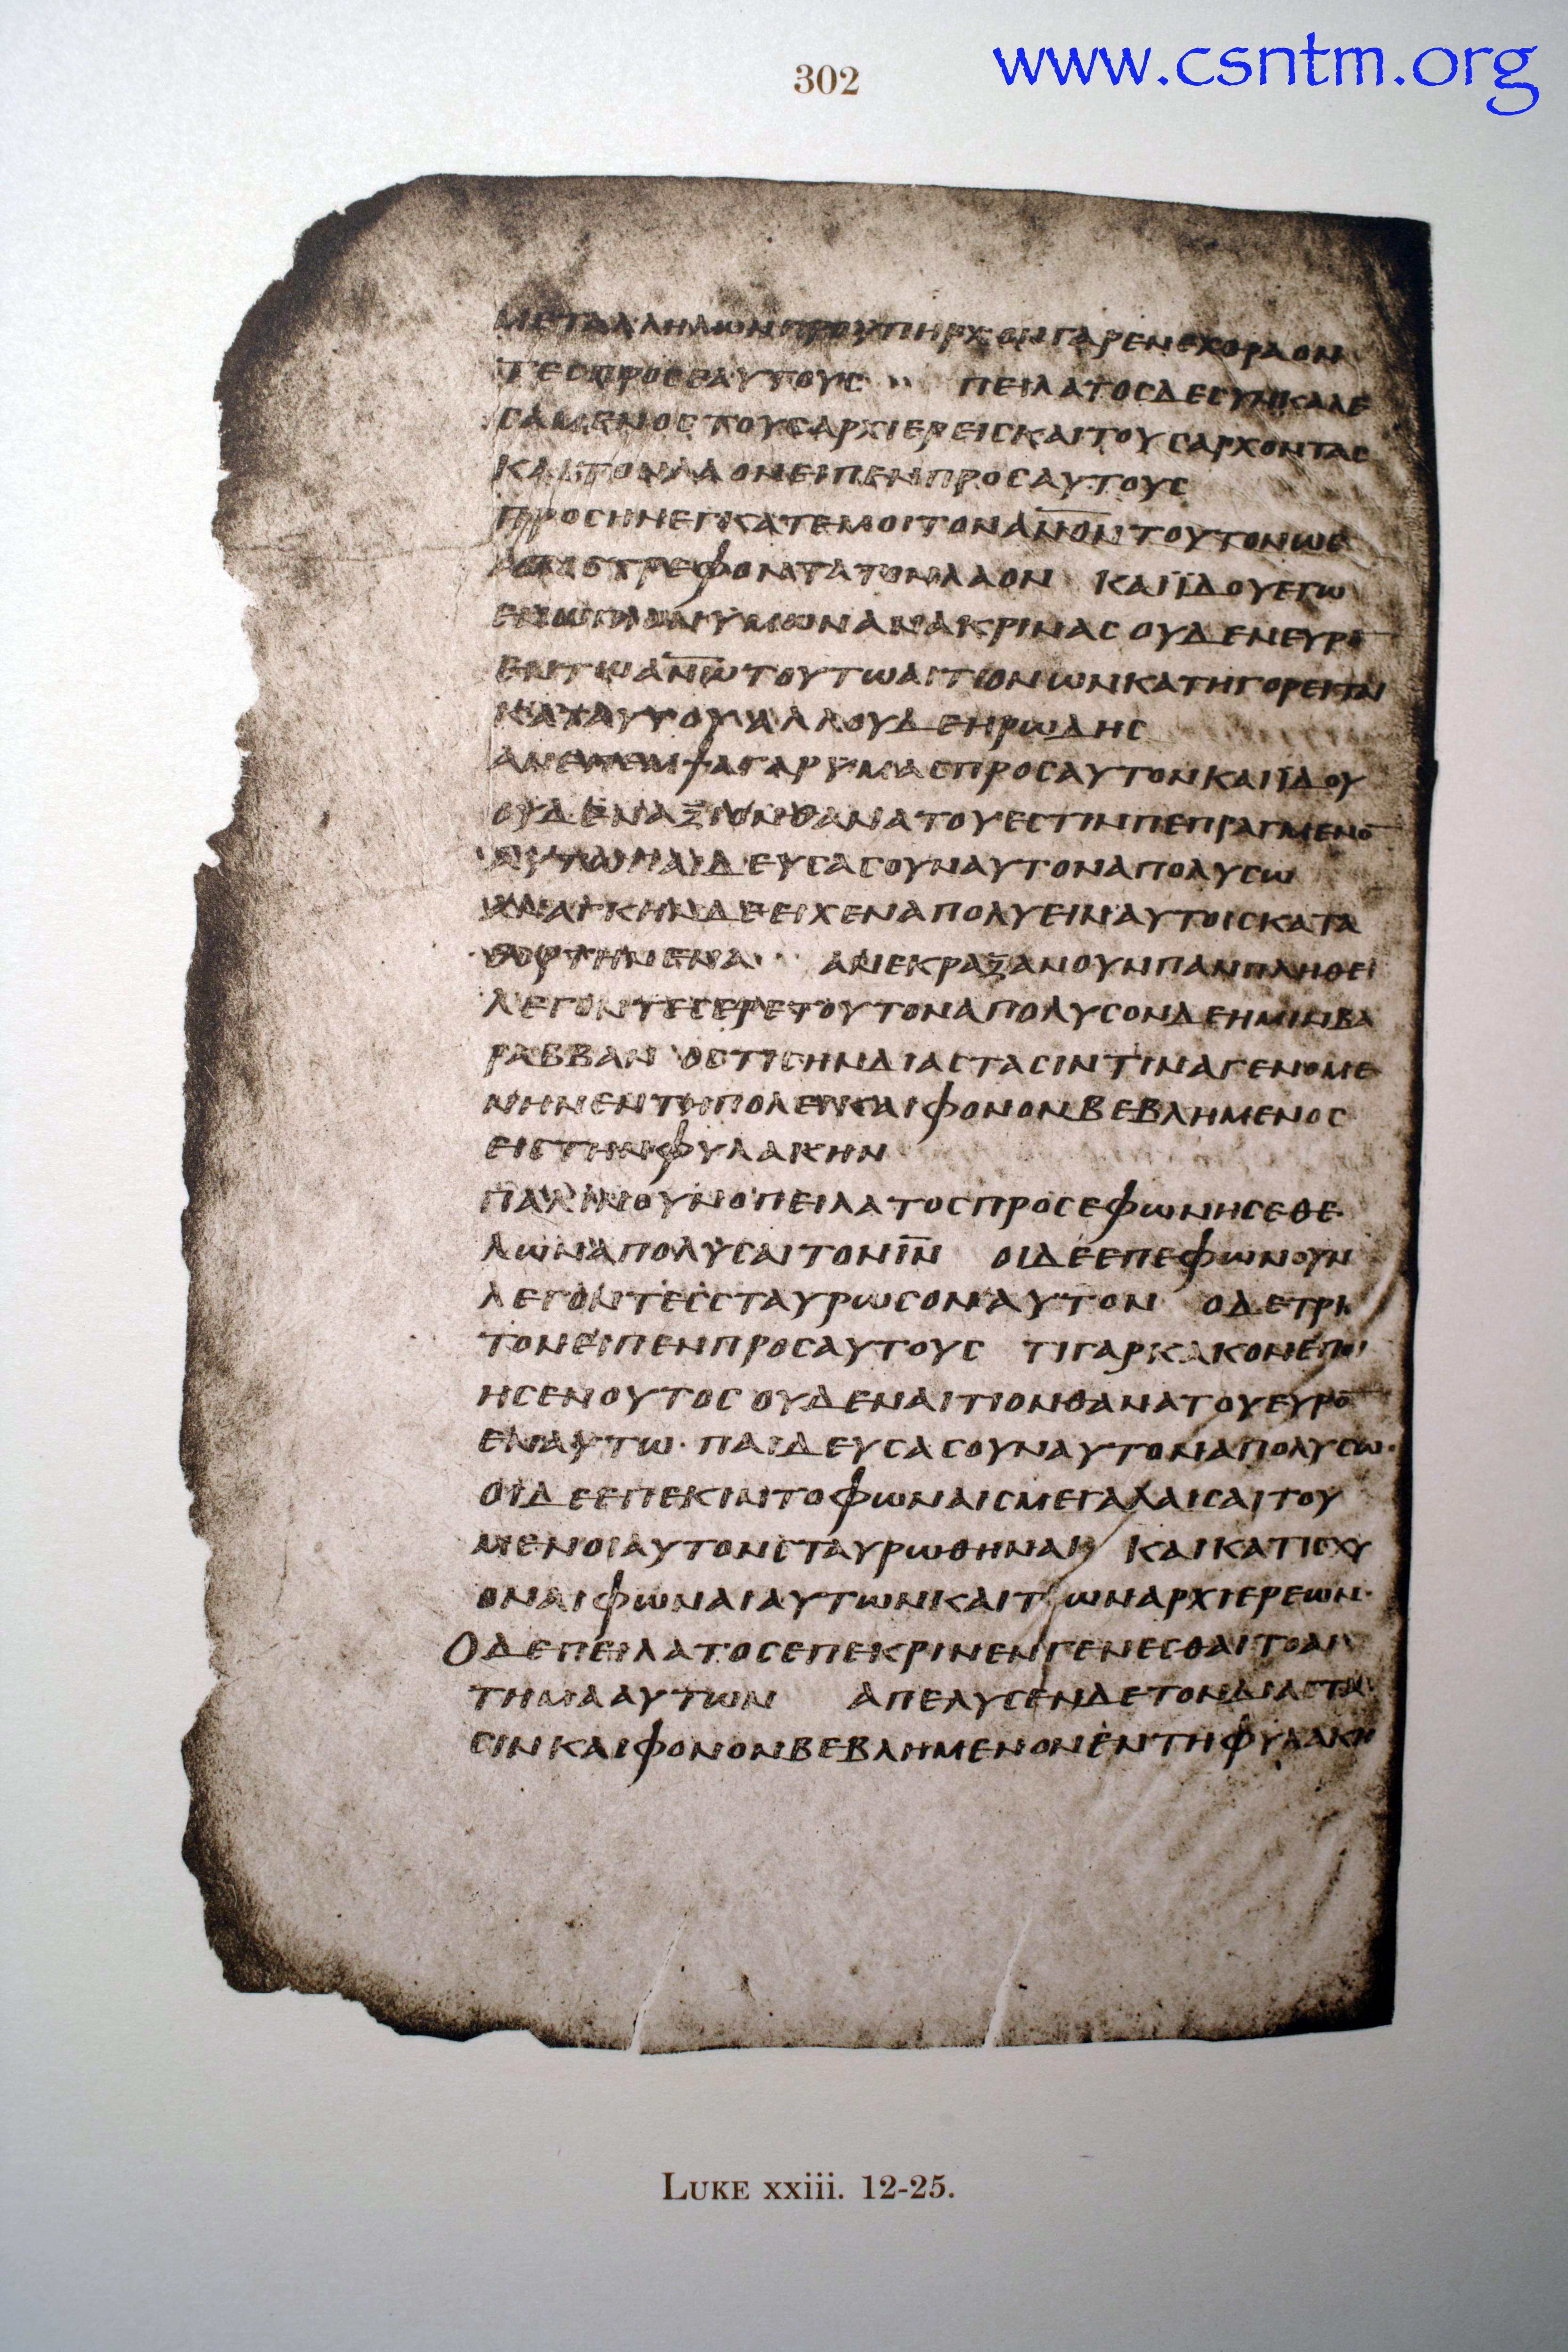 302
www.csntm.org
ΜΕΤΑΛΛΗΛΩΝΠΡΟΥΠΗΡΧΟΝΓΑΡΕΝΕΧΘΡΑΟΝ
ΤΕϹΠΡΟϹΕΑΥΤΟΥϹ ΠΕΙΛΑΤΟϹΔΕϹΥΝΚΑΛΕ
ϹΑΜΕΝΟϹΤΟΥϹΑΡΧΙΕΡΕΙϹΚΑΙΤΟΥϹΑΡΧΟΝΤΑϹ
ΚΑΙΤΟΝΛΑΟΝΕΙΠΕΝΠΡΟϹΑΥΤΟΥϹ
ΠΡΟϹΗΝΕΓΚΑΤΕΜΟΙΤΟΝΑΝ̅Ο̅Ν̅ΤΟΥΤΟΝΩϹ
ΑΠΟϹΤΡΕΦΟΝΤΑΤΟΝΛΑΟΝ ΚΑΙΪΔΟΥΕΓΩ
ΕΝΩΠΙΟΝΥΜΩΝΑΝΑΚΡΙΝΑϹΟΥΔΕΝΕΥΡΟ̅
ΕΝΤΩΑΝ̅Ω̅ΤΟΥΤΩΑΙΤΙΟΝΩΝΚΑΤΗΓΟΡΕΙΤΑΙ
ΚΑΤΑΥΤΟΥΑΛΛΟΥΔΕΗΡΩΔΗϹ
ΑΝΕΠΕΜΨΑΓΑΡΥΜΑϹΠΡΟϹΑΥΤΟΝΚΑΙΪΔΟΥ
ΟΥΔΕΝΑΞΙΟΝΘΑΝΑΤΟΥΕϹΤΙΝΠΕΠΡΑΓΜΕΝΟ̅
ΑΥΤΩΠΑΙΔΕΥϹΑϹΟΥΝΑΥΤΟΝΑΠΟΛΥϹΩ
ΑΝΑΓΚΗΝΔΕΕΙΧΕΝΑΠΟΛΥΕΙΝΑΥΤΟΙϹΚΑΤΑ
ΕΟΡΤΗΝΕΝΑ ΑΝΕΚΡΑΞΑΝΟΥΝΠΑΝΠΛΗΘΕΙ
ΛΕΓΟΝΤΕϹΕΡΕΤΟΥΤΟΝΑΠΟΛΥϹΟΝΔΕΗΜΙΝΒΑ
ΡΑΒΒΑΝ ΟϹΤΙϹΗΝΔΙΑϹΤΑϹΙΝΤΙΝΑΓΕΝΟΜΕ
ΝΗΝΕΝΤΗΠΟΛΕΙΚΑΙΦΟΝΟΝΒΕΒΛΗΜΕΝΟϹ
ΕΙϹΤΗΝΦΥΛΑΚΗΝ
ΠΑΛΙΝΟΥΝΟΠΕΙΛΑΤΟϹΠΡΟϹΕΦΩΝΗϹΕΘΕ
ΛΩΝΑΠΟΛΥϹΑΙΤΟΝΙ̅Ν̅ ΟΙΔΕΕΠΕΦΩΝΟΥΝ
ΛΕΓΟΝΤΕϹϹΤΑΥΡΩϹΟΝΑΥΤΟΝ ΟΔΕΤΡΙ
ΤΟΝΕΙΠΕΝΠΡΟϹΑΥΤΟΥϹ ΤΙΓΑΡΚΑΚΟΝΕΠΟΙ
ΗϹΕΝΟΥΤΟϹΟΥΔΕΝΑΙΤΙΟΝΘΑΝΑΤΟΥΕΥΡΟ̅
ΕΝΑΥΤΩ·ΠΑΙΔΕΥϹΑϹΟΥΝΑΥΤΟΝΑΠΟΛΥϹΩ·
ΟΙΔΕΕΠΕΚΙΝΤΟΦΩΝΑΙϹΜΕΓΑΛΑΙϹΑΙΤΟΥ
ΜΕΝΟΙΑΥΤΟΝϹΤΑΥΡΩΘΗΝΑΙ ΚΑΙΚΑΤΙϹΧΥ
ΟΝΑΙΦΩΝΑΙΑΥΤΩΝΚΑΙΤΩΝΑΡΧΙΕΡΕΩΝ·
ΟΔΕΠΕΙΛΑΤΟϹΕΠΕΚΡΙΝΕΝΓΕΝΕϹΘΑΙΤΟΑΙ
ΤΗΜΑΑΥΤΩΝ ΑΠΕΛΥϹΕΝΔΕΤΟΝΔΙΑϹΤΑ
ϹΙΝΚΑΙΦΟΝΟΝΒΕΒΛΗΜΕΝΟΝΕΝΤΗΦΥΛΑΚΗ
LUKE xxiii. 12-25.